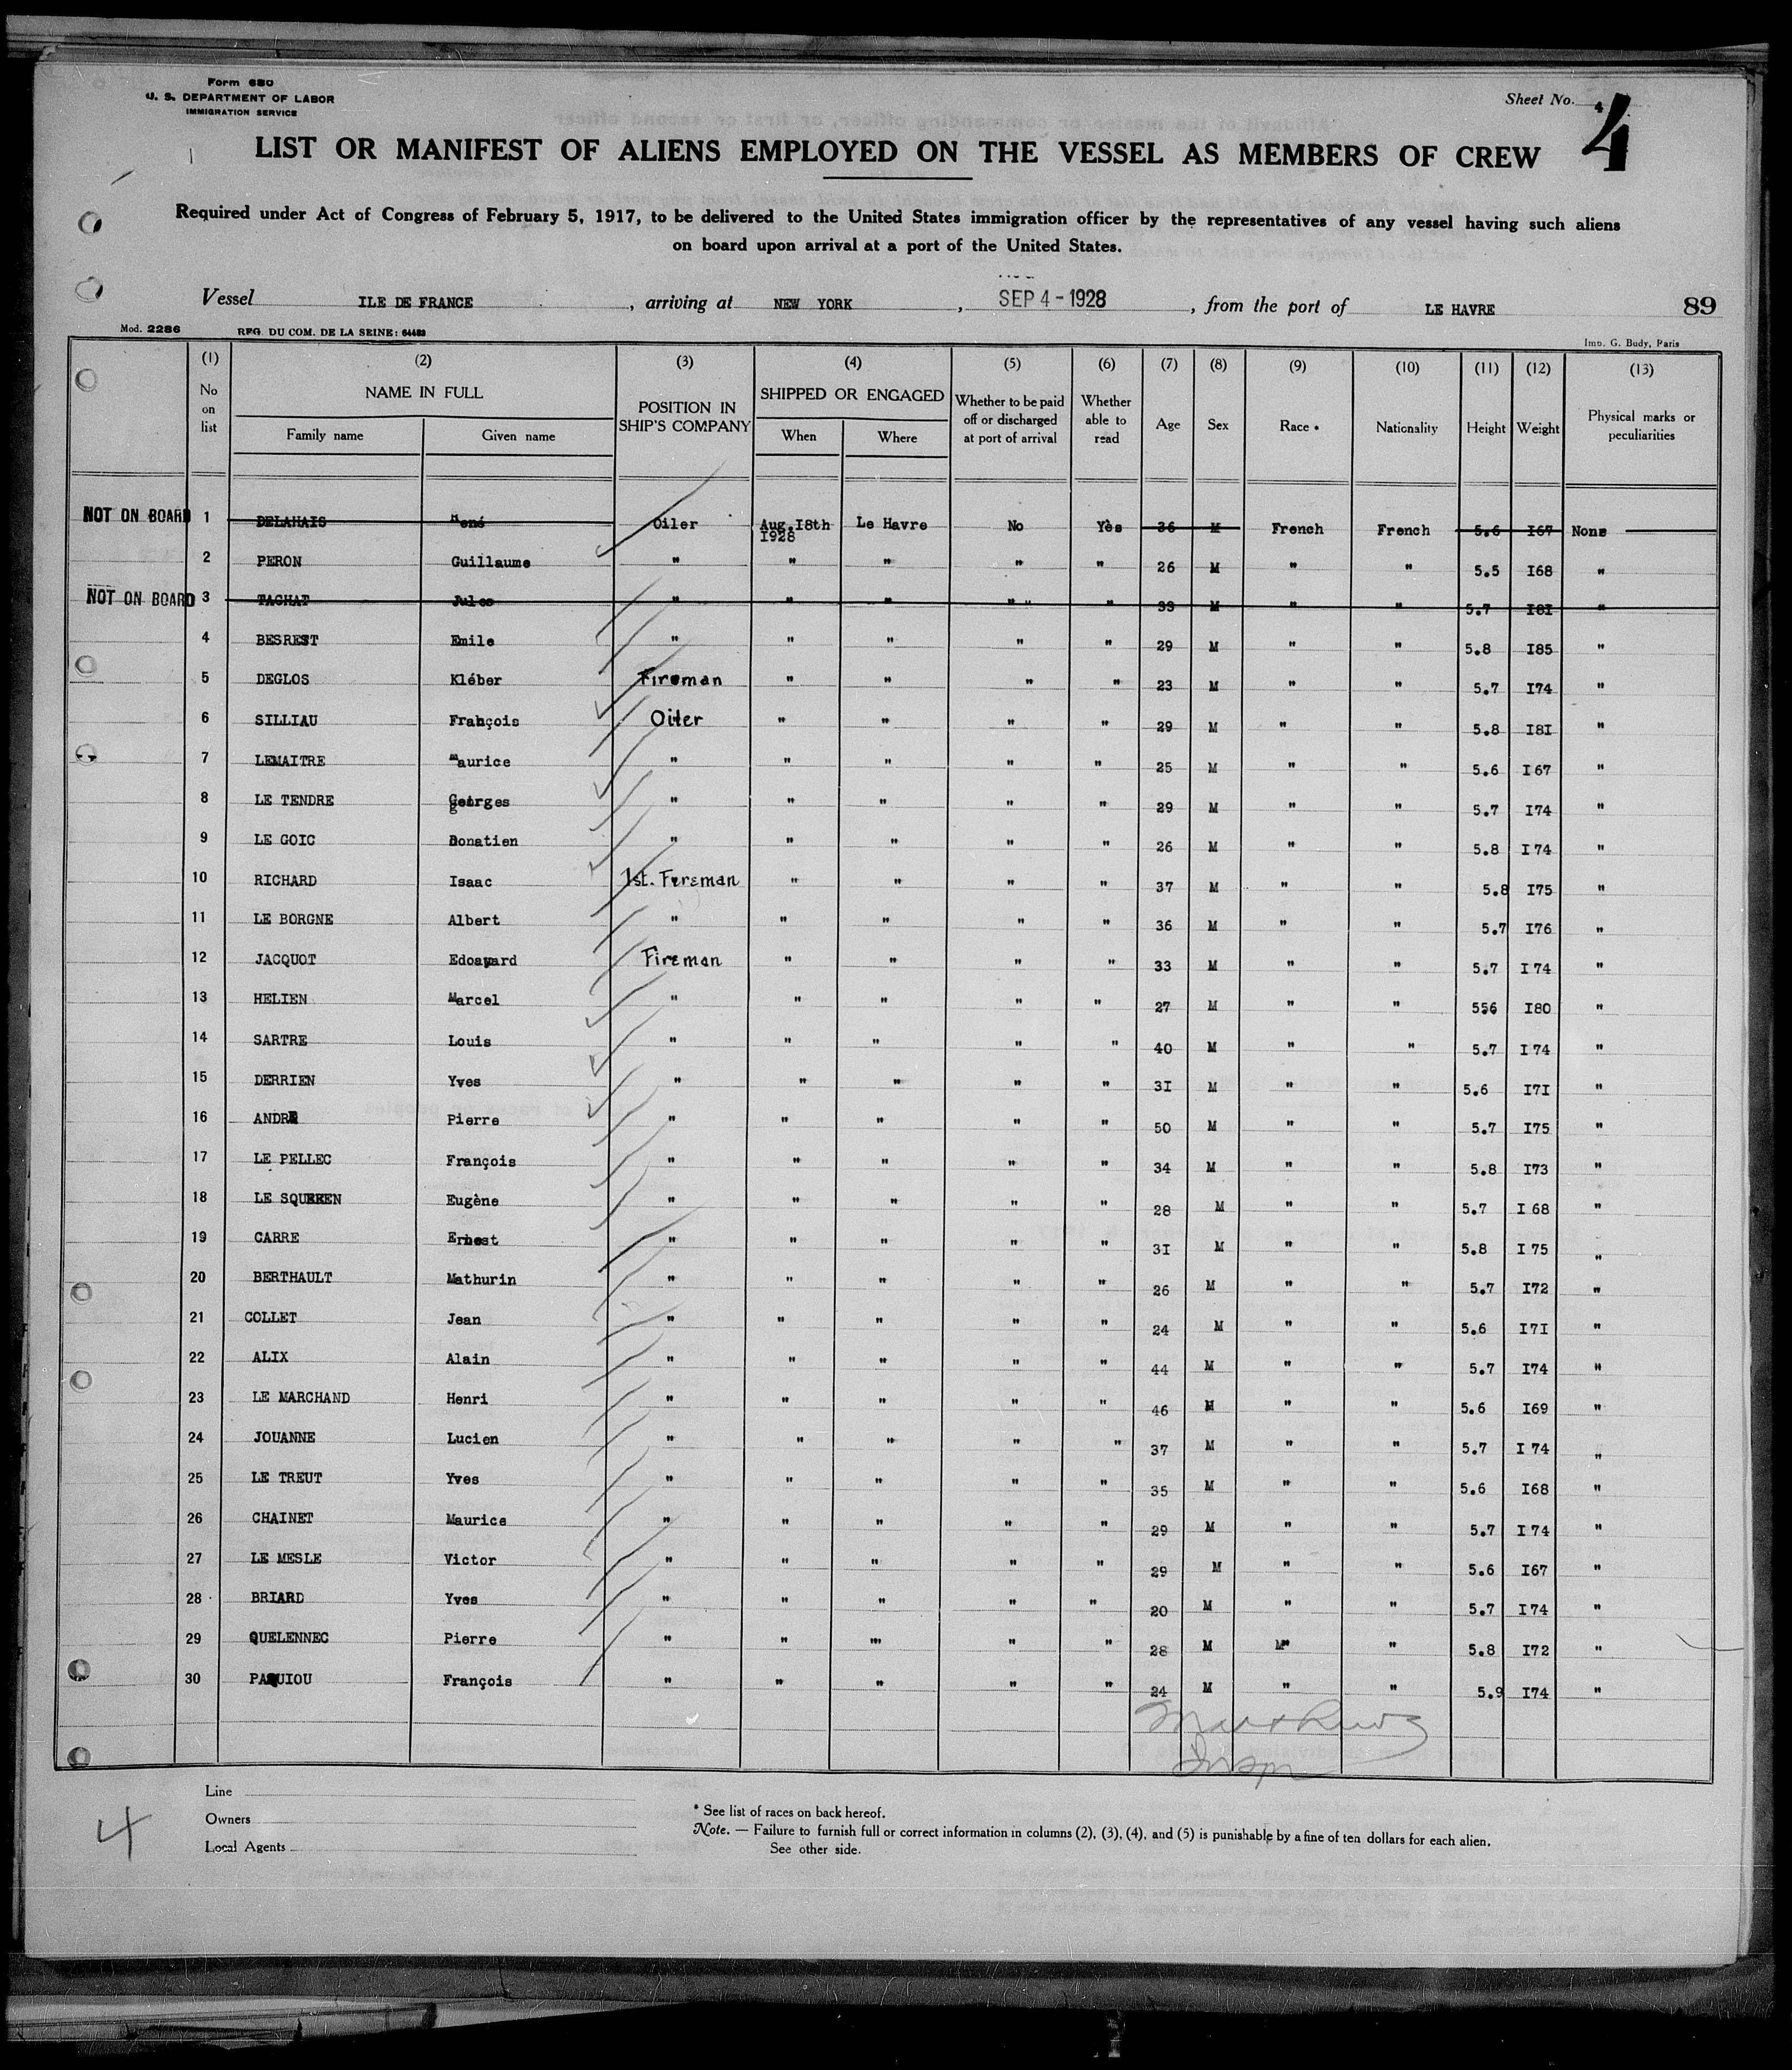 Form 680
U. S. DEPARTMENT OF LABOR
IMMIGRATION SERVICE
Sheet No. 4
4
LIST OR MANIFEST OF ALIENS EMPLOYED ON THE VESSEL AS MEMBERS OF CREW
Required under Act of Congress of February 5, 1917, to be delivered to the United States immigration officer by the representatives of any vessel having such aliens
on board upon arrival at a port of the United States.
Vessel ILE DE FRANCE, arriving at NEW YORK, SEP 4 - 1928, from the port of LE HAVRE 89
Mod. 2286 REG. DU COM. DE LA SEINE: 64482 Imp. G. Budy, Paris
(1) (2) (3) (4) (5) (6) (7) (8) (9) (10) (11) (12) (13)
No on list NAME IN FULL Family name Given name POSITION IN SHIP'S COMPANY SHIPPED OR ENGAGED When Where Whether to be paid off or discharged at port of arrival Whether able to read Age Sex Race * Nationality Height Weight Physical marks or peculiarities
NOT ON BOARD 1 DELAHAIS René Oiler Aug.I8th 1928 Le Havre No Yès 36 M French French 5.6 I67 None
2 PERON Guillaume " " " " " 26 M " " 5.5 I68 "
NOT ON BOARD 3 TACHAT Jules " " " " " 33 M " " 5.7 I8I "
4 BESREST Emile " " " " " 29 M " " 5.8 I85 "
5 DEGLOS Kléber Fireman " " " " 23 M " " 5.7 I74 "
6 SILLIAU François Oiler " " " " 29 M " " 5.8 I8I "
7 LEMAITRE Maurice " " " " " 25 M " " 5.6 I67 "
8 LE TENDRE Georges " " " " " 29 M " " 5.7 I74 "
9 LE GOIC Donatien " " " " " 26 M " " 5.8 I74 "
10 RICHARD Isaac 1st. Fireman " " " " 37 M " " 5.8 I75 "
11 LE BORGNE Albert " " " " " 36 M " " 5.7 I76 "
12 JACQUOT Edouard Fireman " " " " 33 M " " 5.7 I74 "
13 HELIEN Marcel " " " " " 27 M " " 556 I80 "
14 SARTRE Louis " " " " " 40 M " " 5.7 I74 "
15 DERRIEN Yves " " " " " 3I M " " 5.6 I7I "
16 ANDRE Pierre " " " " " 50 M " " 5.7 I75 "
17 LE PELLEC François " " " " " 34 M " " 5.8 I73 "
18 LE SQUEREN Eugène " " " " " 28 M " " 5.7 I68 "
19 CARRE Ernest " " " " " 3I M " " 5.8 I75 "
20 BERTHAULT Mathurin " " " " " 26 M " " 5.7 I72 "
21 COLLET Jean " " " " " 24 M " " 5.6 I7I "
22 ALIX Alain " " " " " 44 M " " 5.7 I74 "
23 LE MARCHAND Henri " " " " " 46 M " " 5.6 I69 "
24 JOUANNE Lucien " " " " " 37 M " " 5.7 I74 "
25 LE TREUT Yves " " " " " 35 M " " 5.6 I68 "
26 CHAINET Maurice " " " " " 29 M " " 5.7 I74 "
27 LE MESLE Victor " " " " " 29 M " " 5.6 I67 "
28 BRIARD Yves " " " " " 20 M " " 5.7 I74 "
29 QUELENNEC Pierre " " " " " 28 M " " 5.8 I72 "
30 PAQUIOU François " " " " " 24 M " " 5.9 I74 "
Line
Owners
Local Agents
4
* See list of races on back hereof.
Note. — Failure to furnish full or correct information in columns (2), (3), (4), and (5) is punishable by a fine of ten dollars for each alien.
See other side.